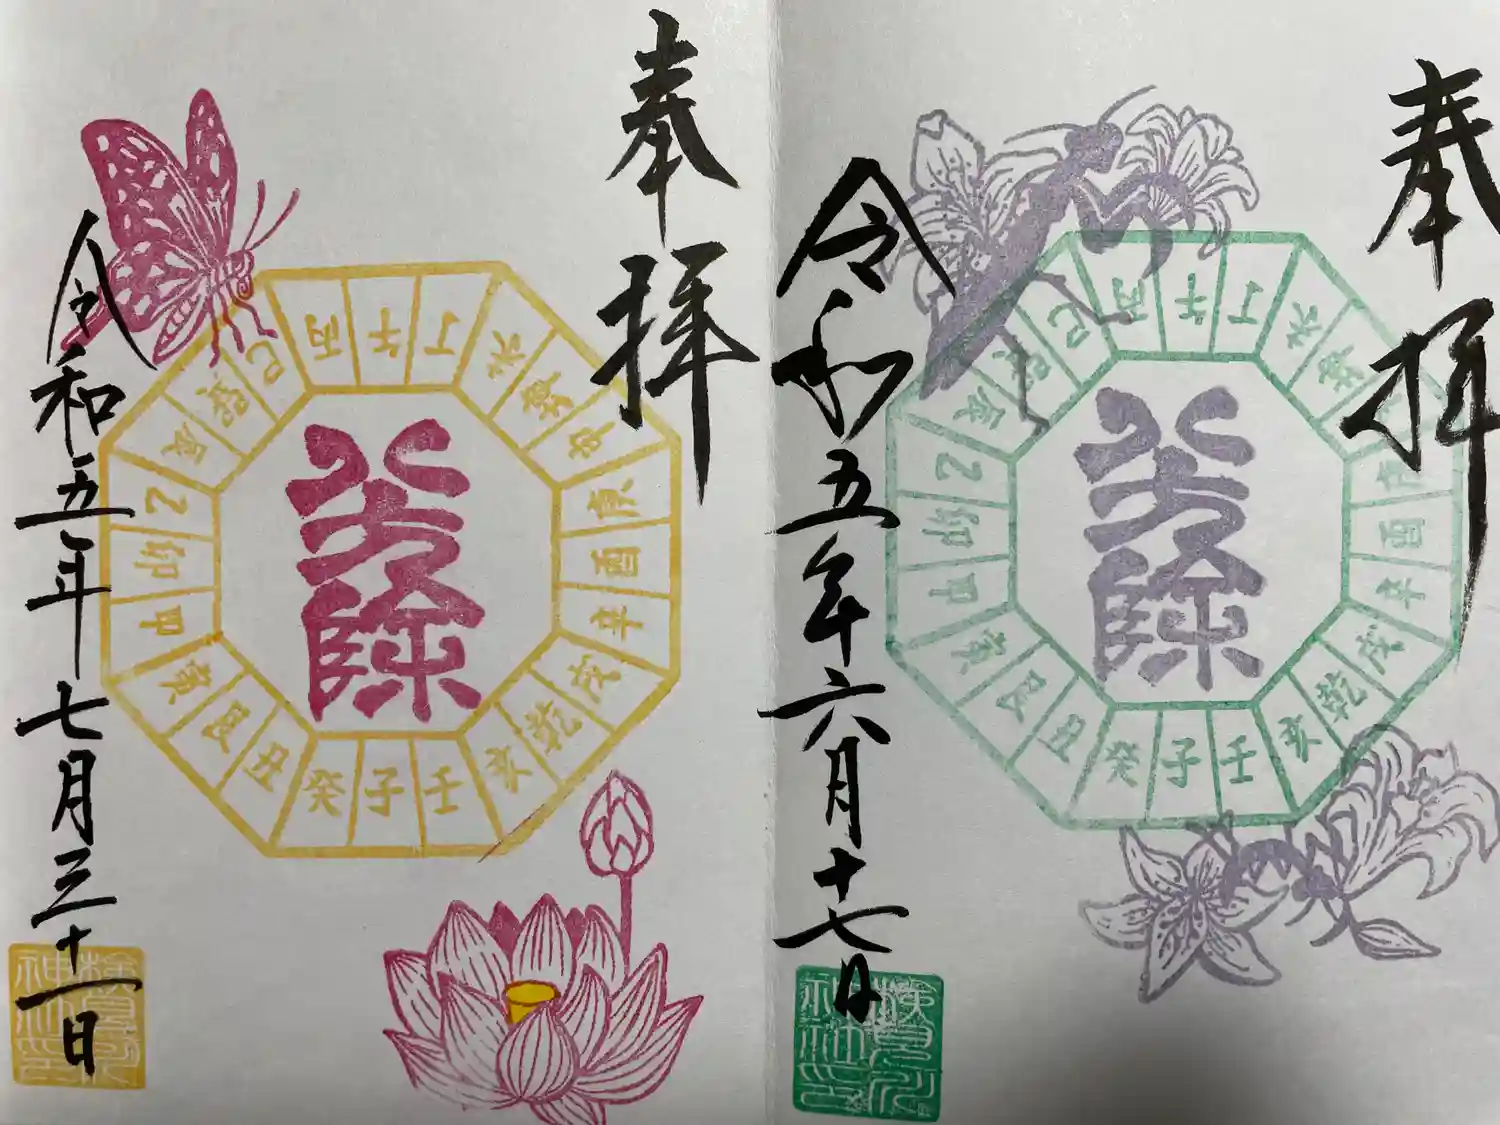 奉拝
丙午丁未坤庚酉辛戌乾亥壬子癸丑艮寅甲卯乙辰巽巳
八方除
令和五年六月十七日
検見川
神社
奉拝
丙午丁未坤申庚酉辛戌乾亥壬子癸丑艮寅甲卯乙辰巽巳
八方除
令和五年七月三十一日
検見川
神社